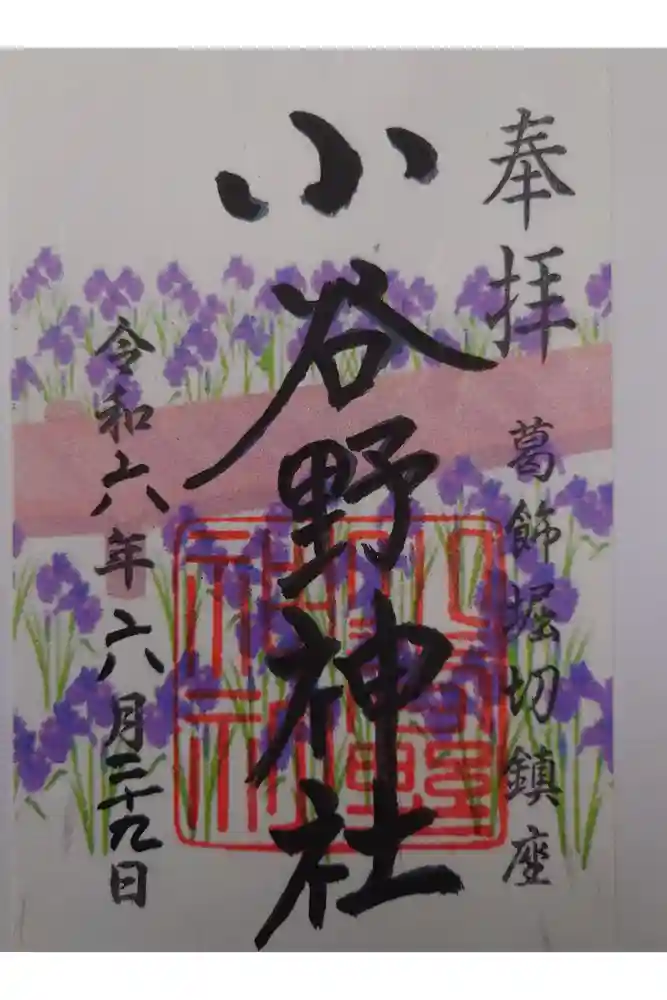 奉拝
葛飾堀切鎮座
小谷野神社
小谷野神社
令和六年六月二十九日